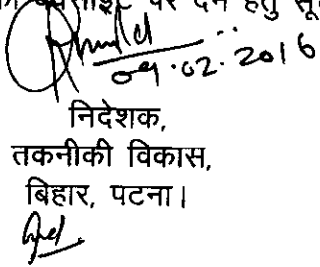 वेबसाइट पर देने हेतु
09.02.2016
निदेशक,
तकनीकी विकास,
बिहार, पटना।